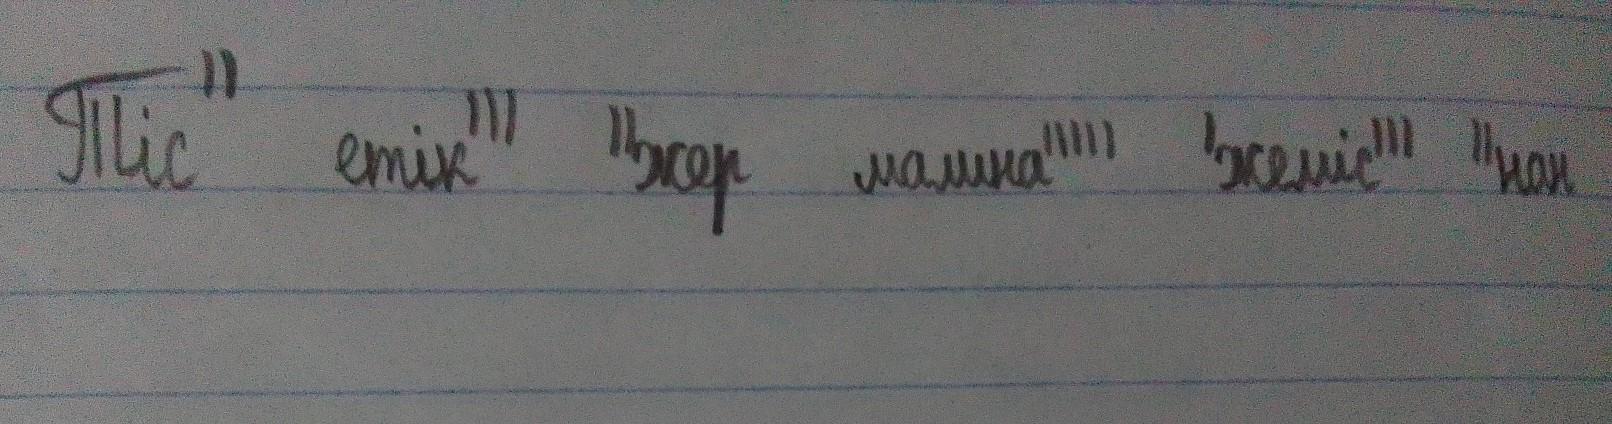 Тіс'' етік''' ''жер машина''''' 'жеміс''' ''нан